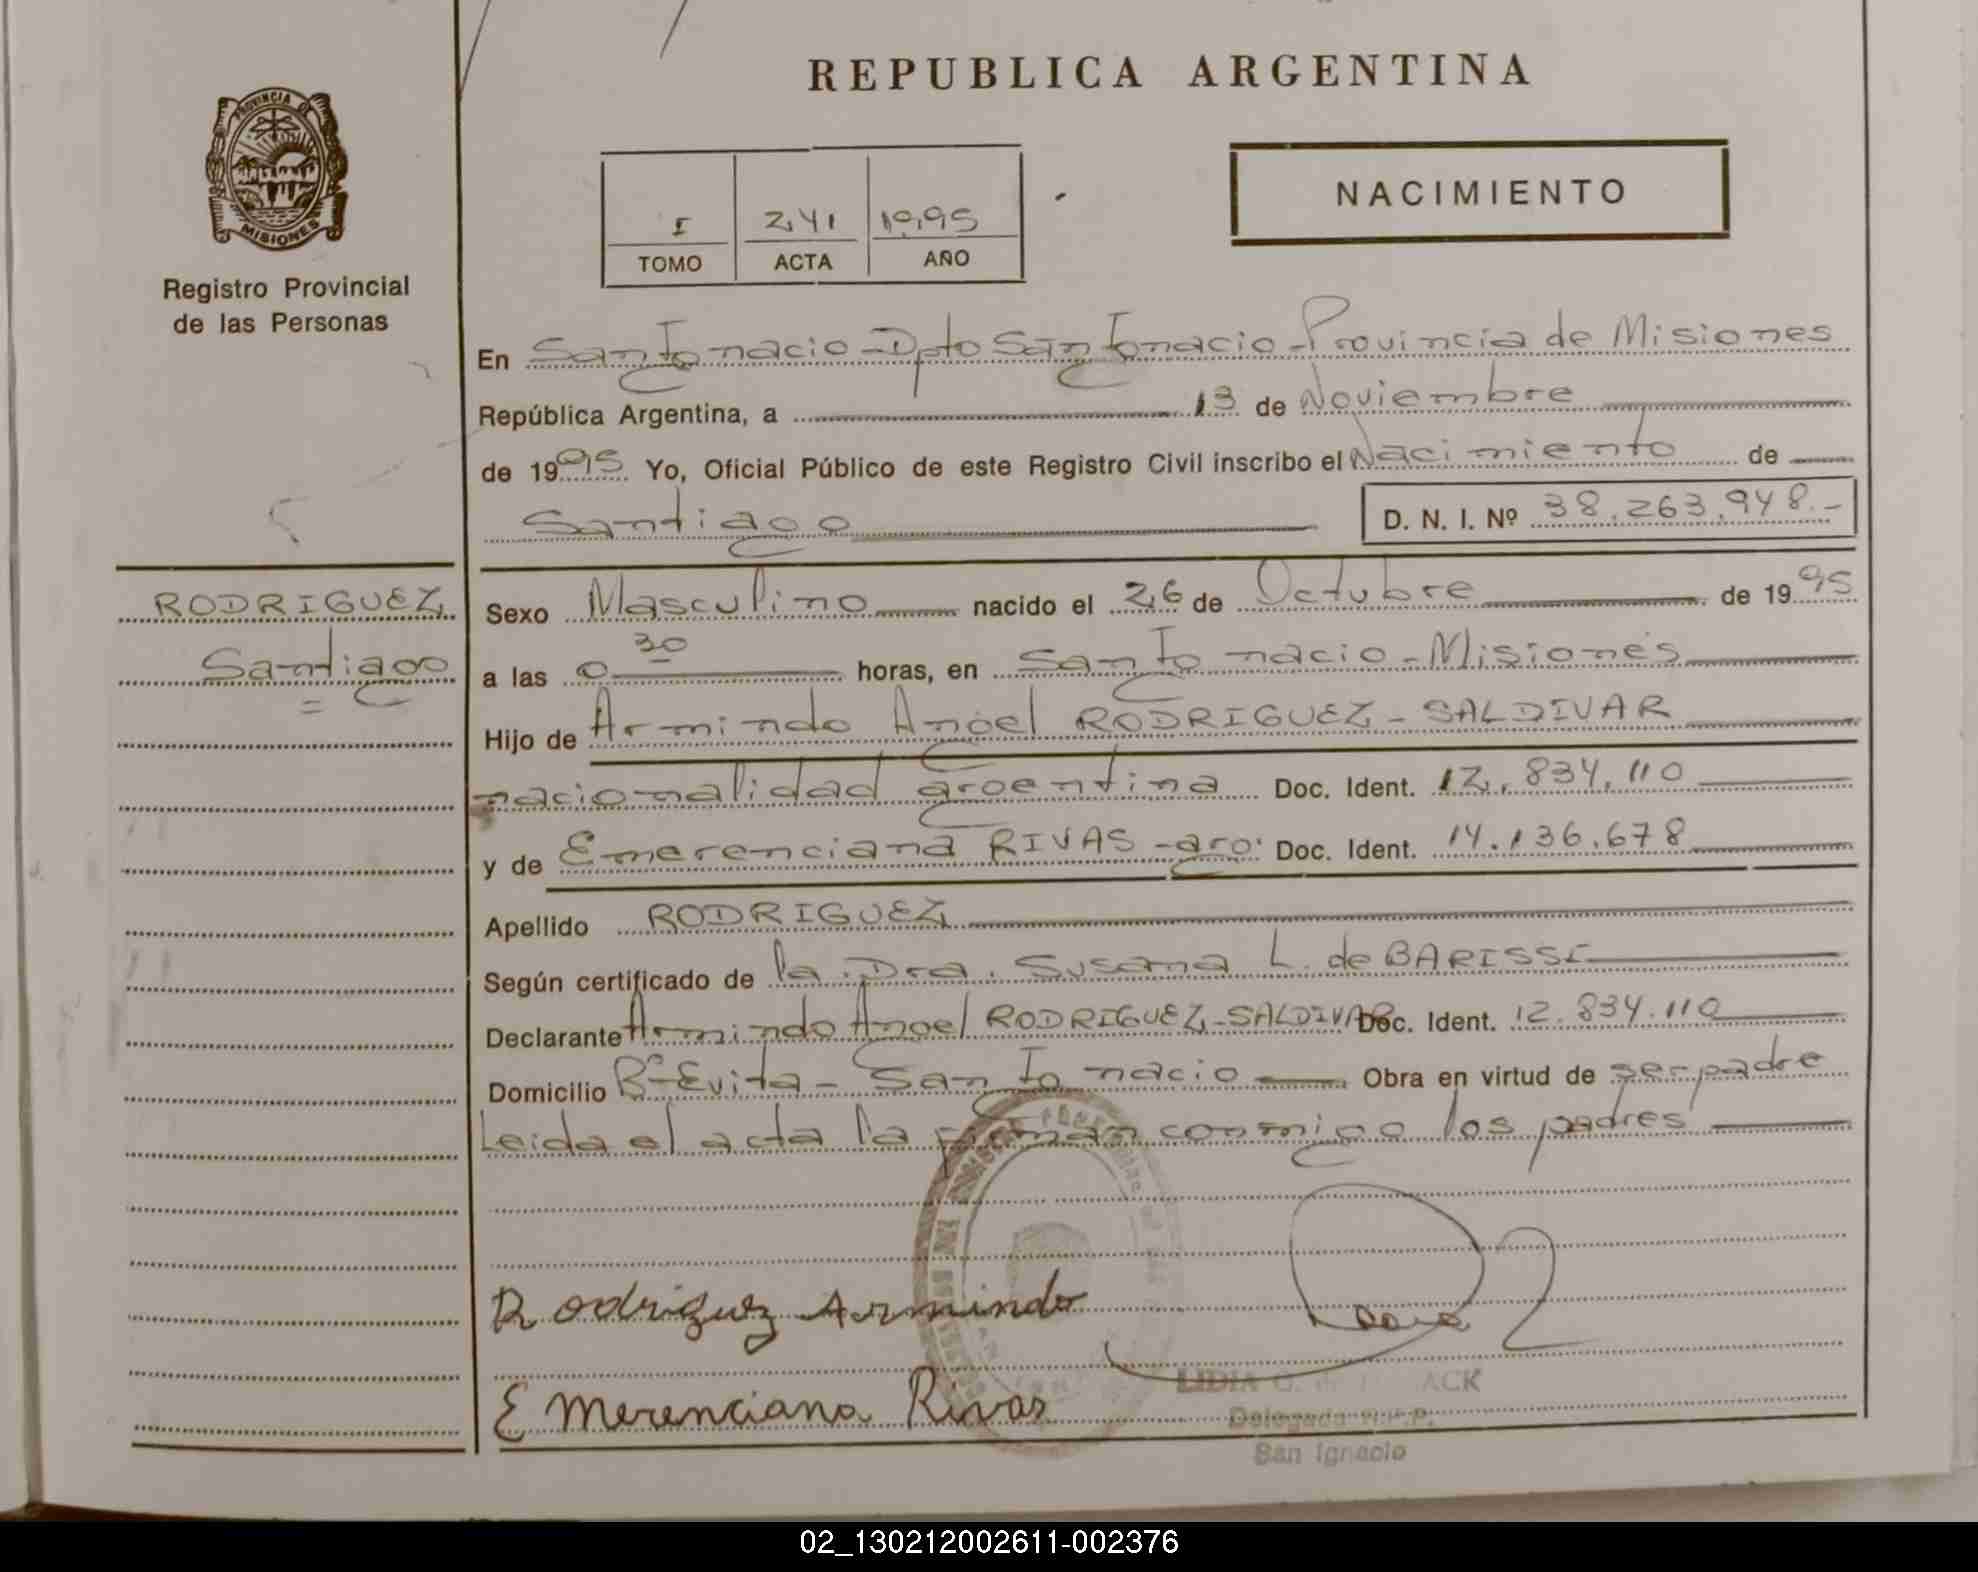 REPUBLICA ARGENTINA
PROVINCIA DE
MISIONES
Registro Provincial
de las Personas
I 241 1995
TOMO ACTA AÑO
NACIMIENTO
En San Ignacio - Dpto San Ignacio - Provincia de Misiones
República Argentina, a 13 de Noviembre
de 1995 Yo, Oficial Público de este Registro Civil inscribo el Nacimiento de
Santiago D. N. I. Nº 38.263.948.-
RODRIGUEZ
Santiago
Sexo Masculino nacido el 26 de Octubre de 1995
a las 0 30 horas, en San Ignacio - Misiones
Hijo de Armindo Angel RODRIGUEZ - SALDIVAR
nacionalidad argentina Doc. Ident. 12.834.110
y de Emerenciana RIVAS - arg. Doc. Ident. 14.136.678
Apellido RODRIGUEZ
Según certificado de la Dra. Susana L. de BARISSE
Declarante Armindo Angel RODRIGUEZ - SALDIVAR Doc. Ident. 12.834.110
Domicilio Bº Evita - San Ignacio Obra en virtud de ser padre
Leida el acta la firman conmigo los padres
Rodriguez Armindo
Emerenciana Rivas
LIDIA G.
Delegada R.P.P.
San Ignacio
02_130212002611-002376